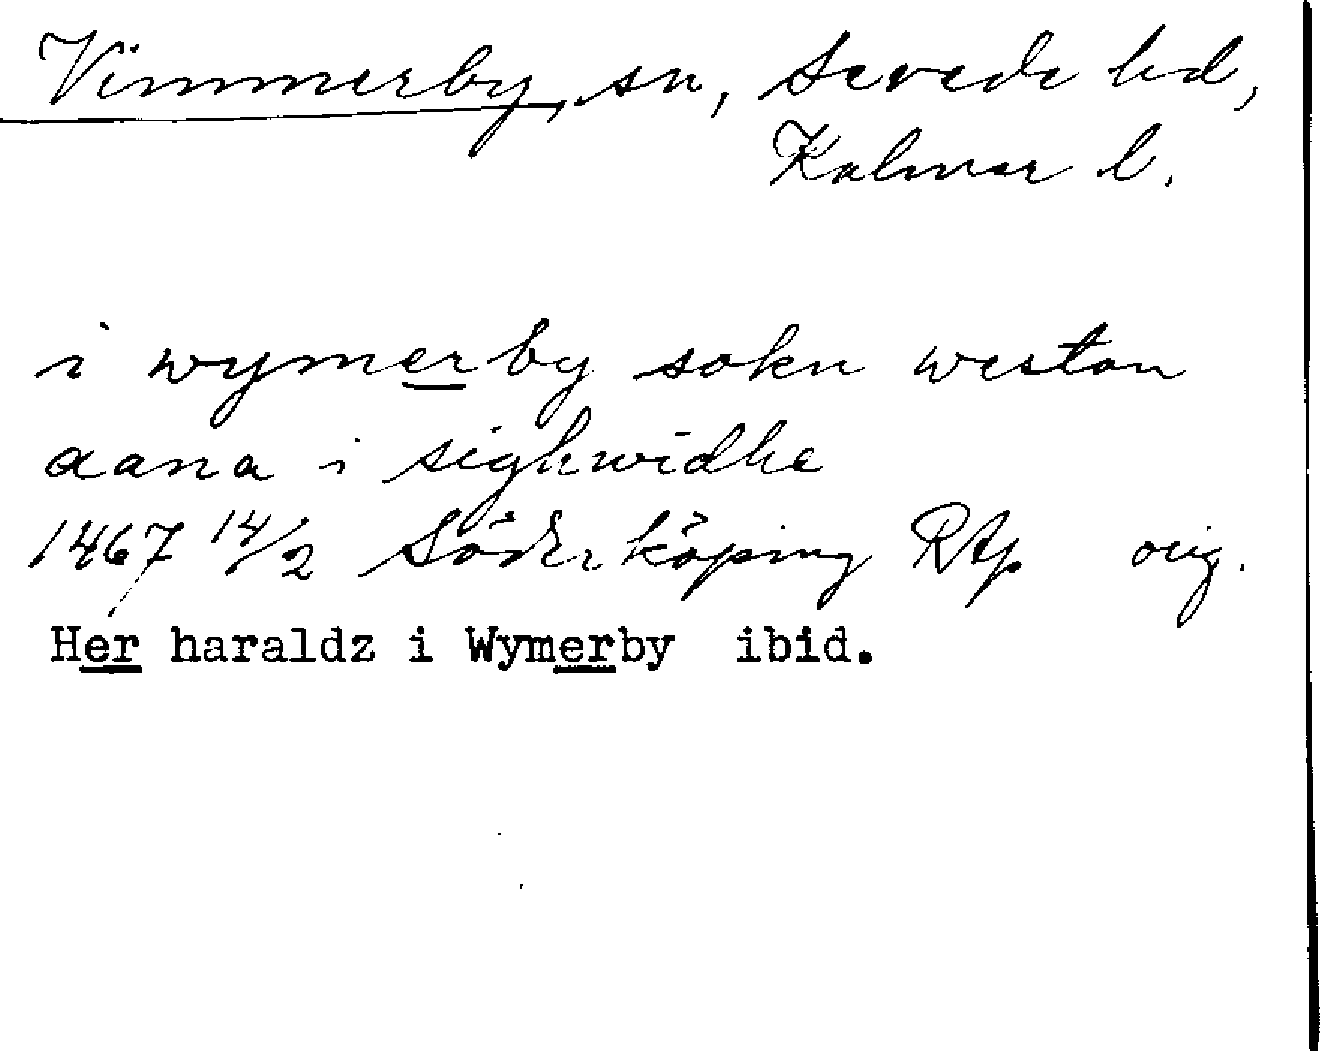 Vimmerby, sn, Sevede hd,
Kalmar l.
i wymerby sokn westan
aana i sighwidhe
1467 14/2 Söderköping RAp orig.
Her haraldz i Wymerby ibid.